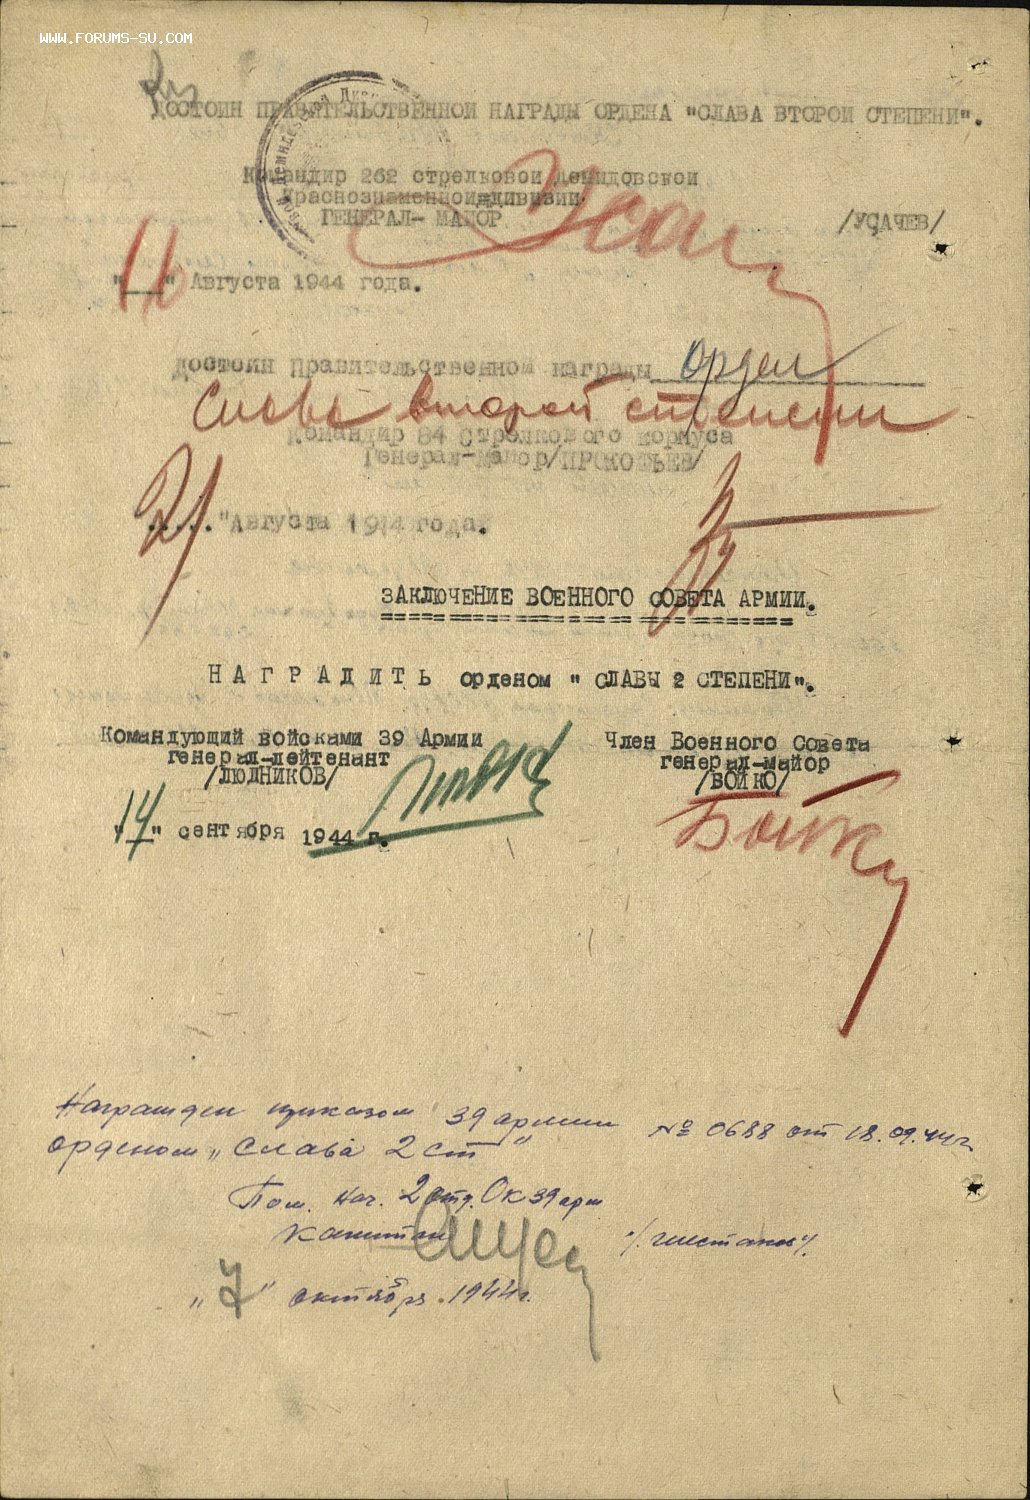 WWW.FORUMS-SU.COM
ДОСТОИН ПРАВИТЕЛЬСТВЕННОЙ НАГРАДЫ ОРДЕНА "СЛАВА ВТОРОЙ СТЕПЕНИ".
Командир 262 стрелковой Демидовской
Краснознаменной дивизии
ГЕНЕРАЛ- МАЙОР /УСАЧЕВ/
" " Августа 1944 года.
Достоин Правительственной награды Орден
Слава второй степени
Командир 84 Стрелкового корпуса
Генерал-майор/ПРОКОФЬЕВ/
21 "Августа 1944 года.
ЗАКЛЮЧЕНИЕ ВОЕННОГО СОВЕТА АРМИИ.
НАГРАДИТЬ орденом " СЛАВЫ 2 СТЕПЕНИ".
Командующий войсками 39 Армии
генерал-лейтенант
/ЛЮДНИКОВ/
"14" сентября 1944 г.
Член Военного Совета
генерал-майор
/БОЙКО/
Бойко
Награжден приказом 39 армии № 0688 от 18.09.44 г
орденом „Слава 2 ст"
Пом. Нач. 2 отд. ОК 39 арм
Капитан /Шестаков/.
„7" октября 1944 г.